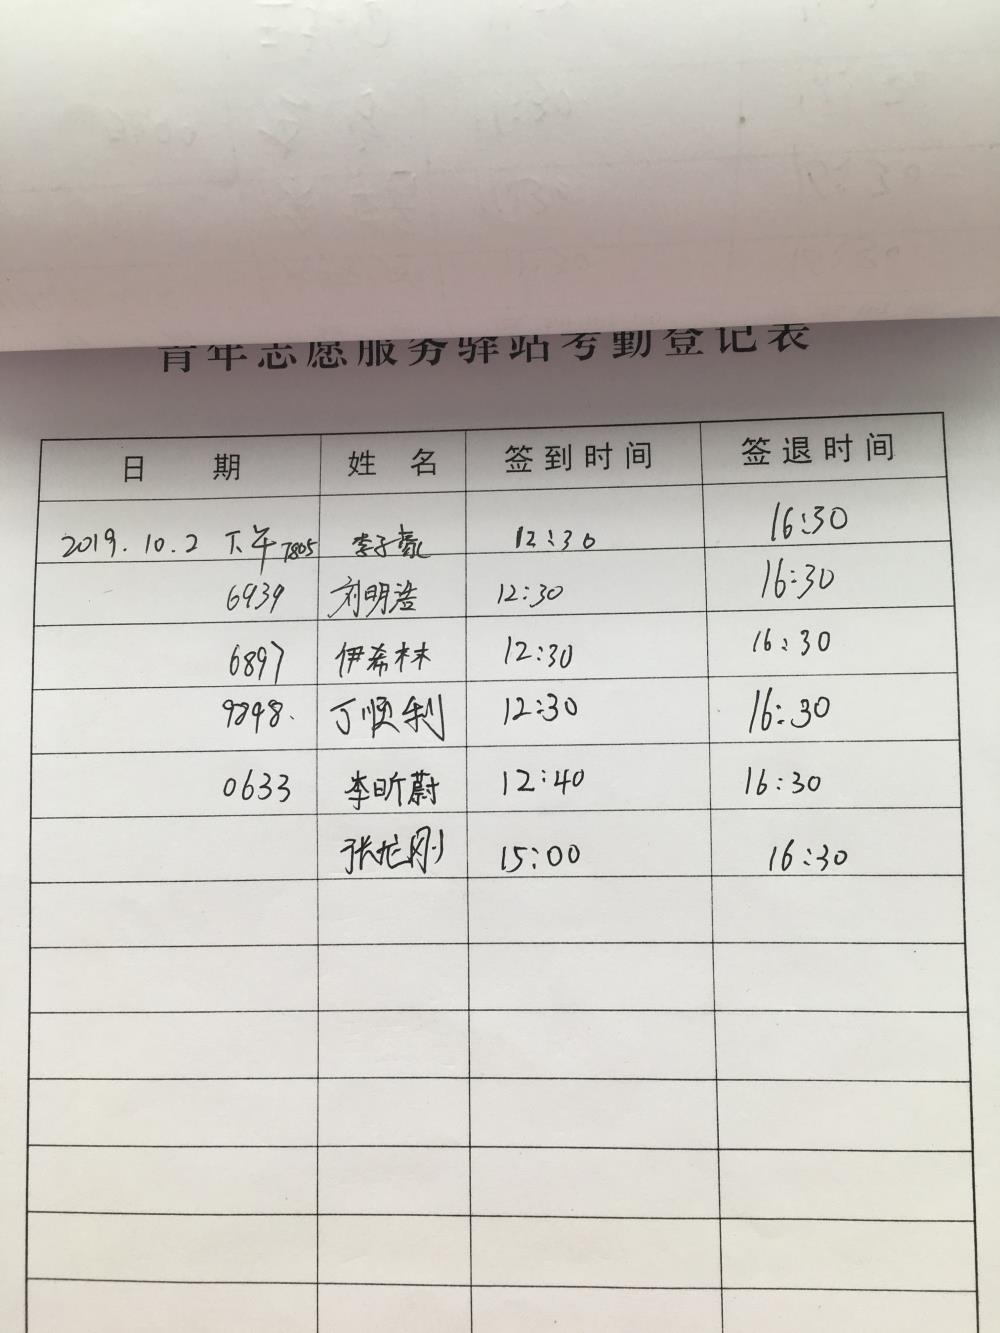 青年志愿服务驿站考勤登记表
日 期 姓 名 签到时间 签退时间
2019.10.2 下午 7805 李子豪 12:30 16:30
6939 刘明浩 12:30 16:30
6897 伊希林 12:30 16:30
9898. 丁顺利 12:30 16:30
0633 李昕蔚 12:40 16:30
张龙刚 15:00 16:30